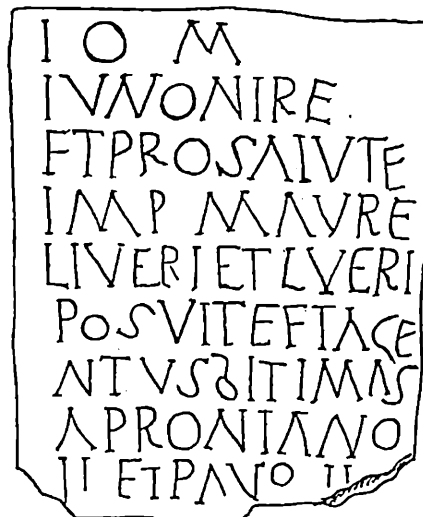 I O M
IVNONIRE
ETPROSALVTE
IMP MAVRE
LIVERI ET LVERI
POSVITEFTACE
NTVSBITIMAS
APRONIANO
II ETPAVO II